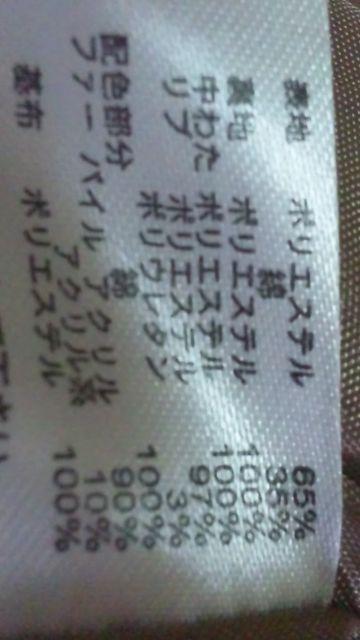 表地 ポリエステル 65%
綿 35%
裏地 ポリエステル 100%
中わた ポリエステル 100%
リブ ポリエステル 97%
ポリウレタン 3%
配色部分 綿 100%
ファー パイル アクリル 90%
アクリル系 10%
基布 ポリエステル 100%